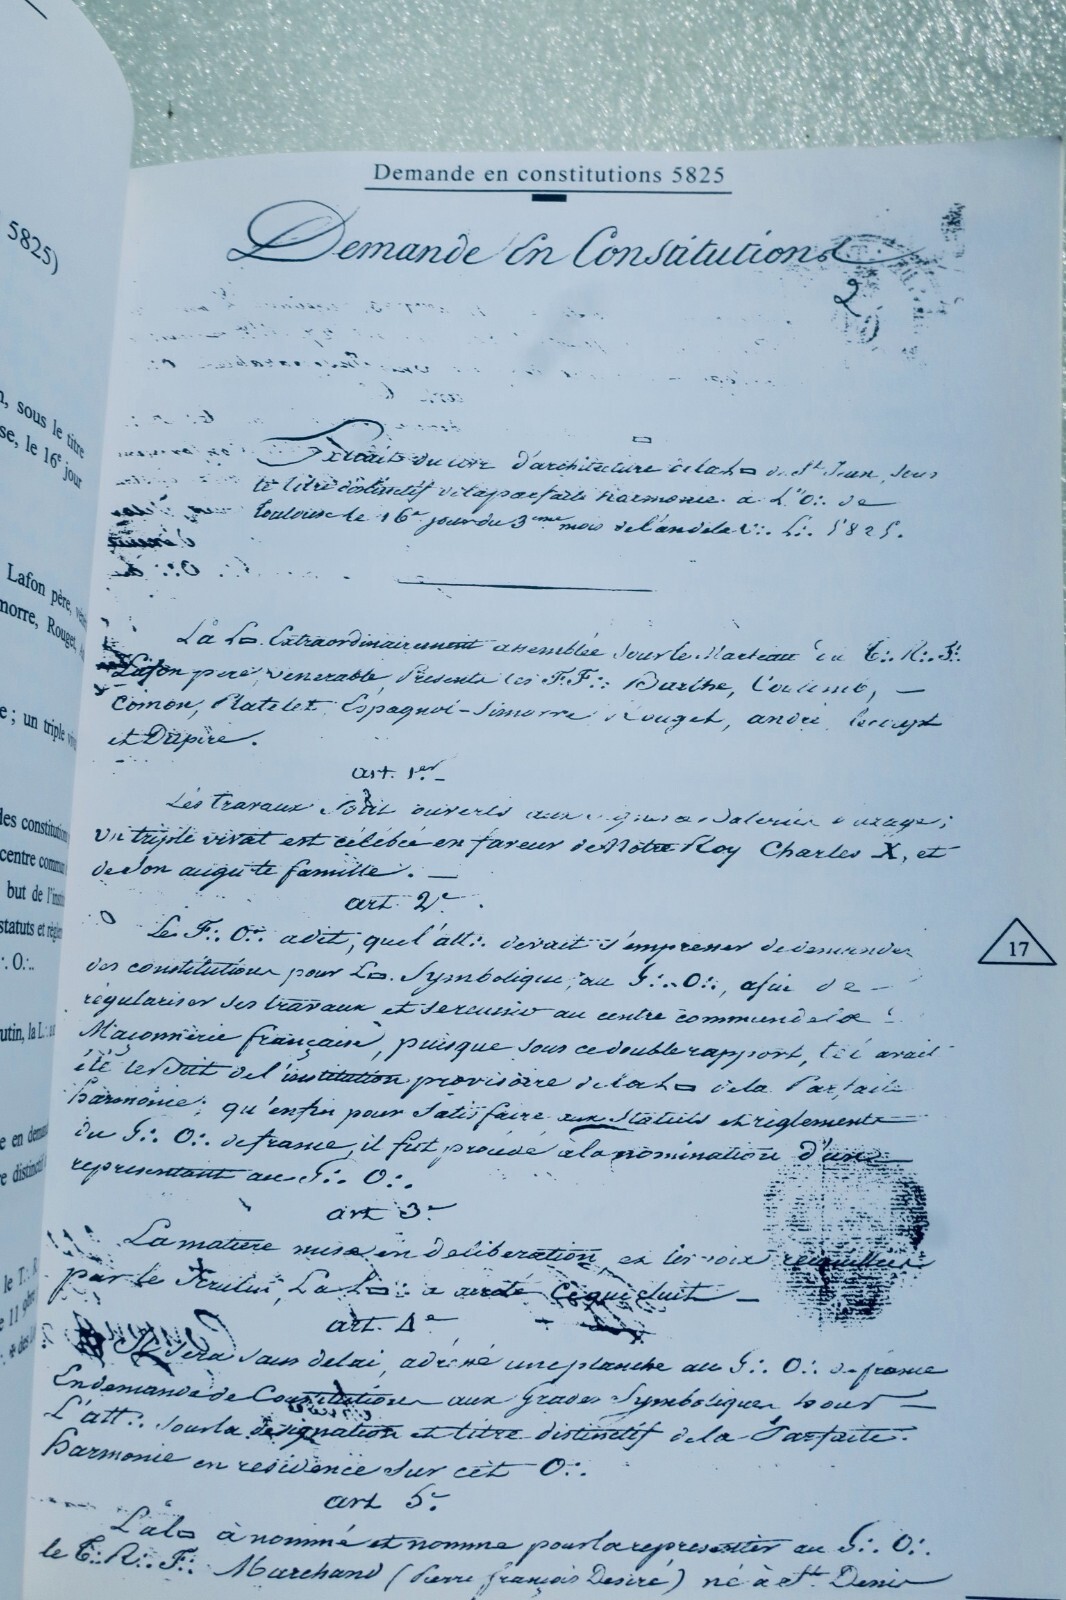 5825)
, sous le titre
se, le 16e jour
Lafon père,
morre, Rouget,
e ; un triple
des constitution
centre commun
but de l'inst
statuts et règle
∴ O∴.
utin, la L∴
e en dema
re distinctif
le T∴ R
Demande en constitutions 5825
Demande En Constitutions
2
Extrait du livre d'architecture de la L▭ de St. Jean, sous
le titre distinctif de la parfaite harmonie à L'O∴ de
Toulouse le 16e jour du 3eme mois de l'an de la V∴ L∴ 5825.
La L▭. Extraordinairement assemblée sous le Marteau du T∴ R∴ F∴
Lafon pere, venerable, Présents les F.F∴ Barthe, Couleomb, —
Comon, Platelet, Espagnol-Simorre, Rouget, andré,
et Dupire.
art. 1er.
Les travaux sont ouverts aux usage;
un triple vivat est célébée en faveur de Notre Roy Charles X, et
de son auguste famille. —
art. 2e.
Le F∴ O∴ a dit, que l'att∴ devait s'empresser de demander
des constitutions pour L▭. Symbolique, au G∴ O∴, afin de —
régulariser ses travaux et se reunir au centre commun de la
Maçonnerie française, puisque sous ce double rapport, tel avait
été le but de l'institution provisoire de la L▭ de la Parfaite
harmonie; qu'enfin pour satisfaire aux Statuts et règlements
du G∴ O∴ de france, il fut procédé à la nomination d'un
representant au G∴ O∴.
art 3e
La matière mise en deliberation, et les voix recueillies
par le Scrutin, La L▭∴ a arrêté ce qui suit —
art. 4e
Il sera sans delai, adressé une planche au G∴ O∴ de france
En demande de Constitutions aux Grades Symboliques pour —
L'att∴ sous la designation et titre distinctif de la Parfaite
harmonie en residence sur cet O∴.
art 5e
La L▭ à nommé et nomme pour la representer au G∴ O∴.
le T∴ R∴ F∴ Marchand (Pierre françois Desiré) né à St. Denis
17